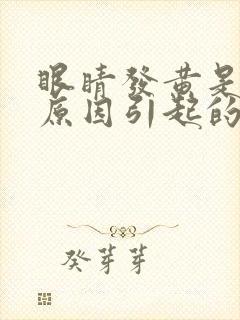 眼睛發黃是
原因引起的
癸芽芽